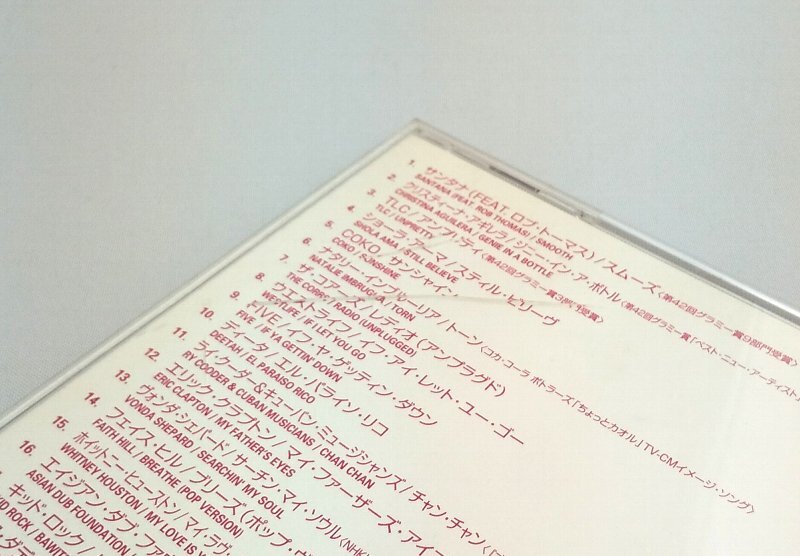 1. サンタナ(FEAT. ロブ・トーマス)/スムーズ〈第42回グラミー賞9部門受賞〉
SANTANA (FEAT. ROB THOMAS) / SMOOTH
2. クリスティーナ・アギレラ/ジニー・イン・ア・ボトル〈第42回グラミー賞「ベスト・ニュー・アーティスト
CHRISTINA AGUILERA / GENIE IN A BOTTLE
3. TLC/アンプリティ〈第42回グラミー賞3部門受賞〉
TLC / UNPRETTY
4. ショーラ・アーマ/スティル・ビリーヴ
SHOLA AMA / STILL BELIEVE
5. COKO/サンシャイン
COKO / SUNSHINE
6. ナタリー・インブルーリア/トーン〈コカ・コーラ ボトラーズ「ちょっとカオル」TV-CMイメージ・ソング〉
NATALIE IMBRUGLIA / TORN
7. ザ・コアーズ/レディオ(アンプラグド)
THE CORRS / RADIO (UNPLUGGED)
8. ウエストライフ/イフ・アイ・レット・ユー・ゴー
WESTLIFE / IF I LET YOU GO
9. FIVE/イフ・ヤ・ゲッティン・ダウン
FIVE / IF YA GETTIN' DOWN
10. ディータ/エル・パライソ・リコ
DEETAH / EL PARAISO RICO
11. ライ・クーダー&キューバン・ミュージシャンズ/チャン・チャン
RY COODER & CUBAN MUSICIANS / CHAN CHAN
12. エリック・クラプトン/マイ・ファーザーズ・アイ
ERIC CLAPTON / MY FATHER'S EYES
13. ヴォンダ・シェパード/サーチン・マイ・ソウル〈NHK
VONDA SHEPARD / SEARCHIN' MY SOUL
14. フェイス・ヒル/ブリーズ(ポップ・ヴ
FAITH HILL / BREATHE (POP VERSION)
15. ホイットニー・ヒューストン/マイ・ラヴ
WHITNEY HOUSTON / MY LOVE IS
16. エイジアン・ダブ・ファ
ASIAN DUB FOUNDATION
キッド・ロック/
KID ROCK / BAWIT